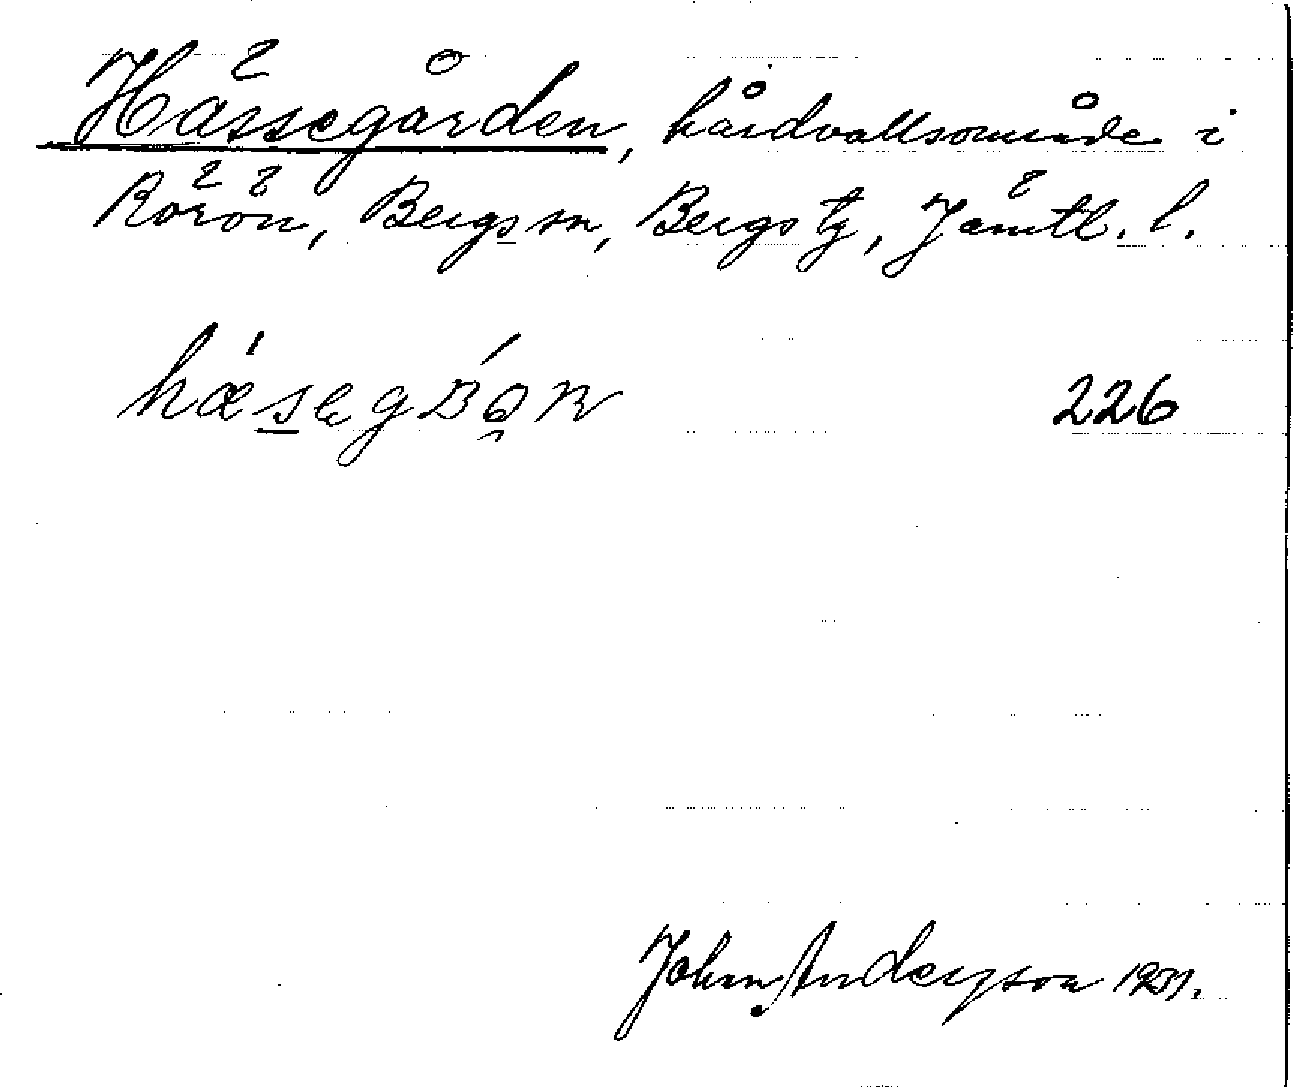 Hässegården, hårdvallsområde i
Rörön, Bergs sn, Bergs tg, Jämtl. l.
226
John Anderson